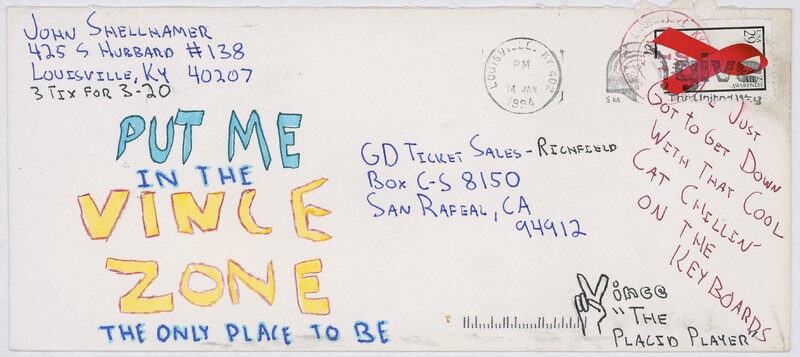 John Shellhamer
425 S Hubbard #138
Louisville, KY 40207
3 Tix for 3-20
PUT ME
IN THE
VINCE
ZONE
THE ONLY PLACE TO BE
LOUISVILLE, KY 402
PM
14 JAN
1994
SM
give
USA
29
AIDS
AWARENESS
GD Ticket Sales - Richfield
Box C-S 8150
San Rafeal, CA
94912
Just
Got to Get Down
With That Cool
Cat Chillin'
on the
Keyboards
Vince
"The
Placid Player"